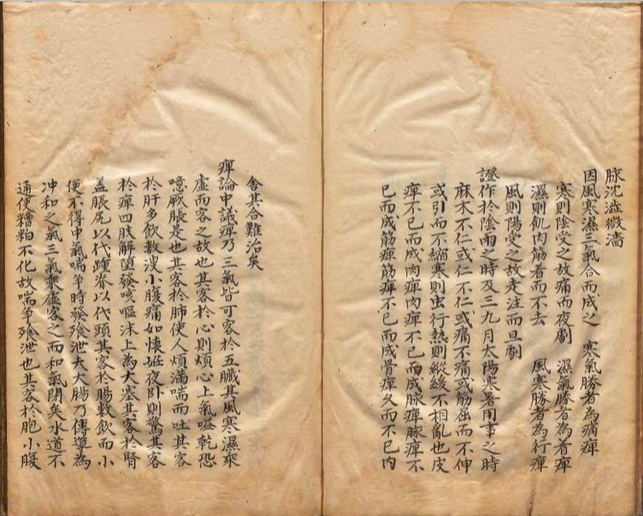 脉沈澁微濇
因風寒濕三氣合而成之　寒氣勝者為痛痺
寒則陰受之故痛而夜劇　濕氣勝者為着痺
濕則飢肉筋着而不去　風寒勝者為行痺
風則陽受之故走注而旦劇
證作於陰雨之時及三九月太陽寒暑用事之時
麻木不仁或仁不仁或痛不痛或筋屈而不伸
或引而不縮寒則虫行熱則縱緩不相亂也皮
痺不已而成肉痺肉痺不已而成脉痺脉痺不
已而成筋痺筋痺不已而成骨痺久而不已內
舍其合難治矣
痺論中議痺乃三氣皆可客於五臟其風寒濕乘
虛而客之故也其客於心則煩心上氣嗌乾恐
噫厥脹是也其客於肺使人煩滿喘而吐其客
於肝多飲數溲小腹痛如懷妊夜卧則驚其客
於痺四肢解墮發咳嘔沫上為大塞其客於腎
盖脹尻以代踵脊以代頭其客於腸數飲而小
便不得中氣喘爭時發飱泄夫大腸乃傳道為
冲和之氣三氣乘虛客之而和氣閉矣水道不
通使糟粕不化故喘爭飱泄也其客於胞小腹